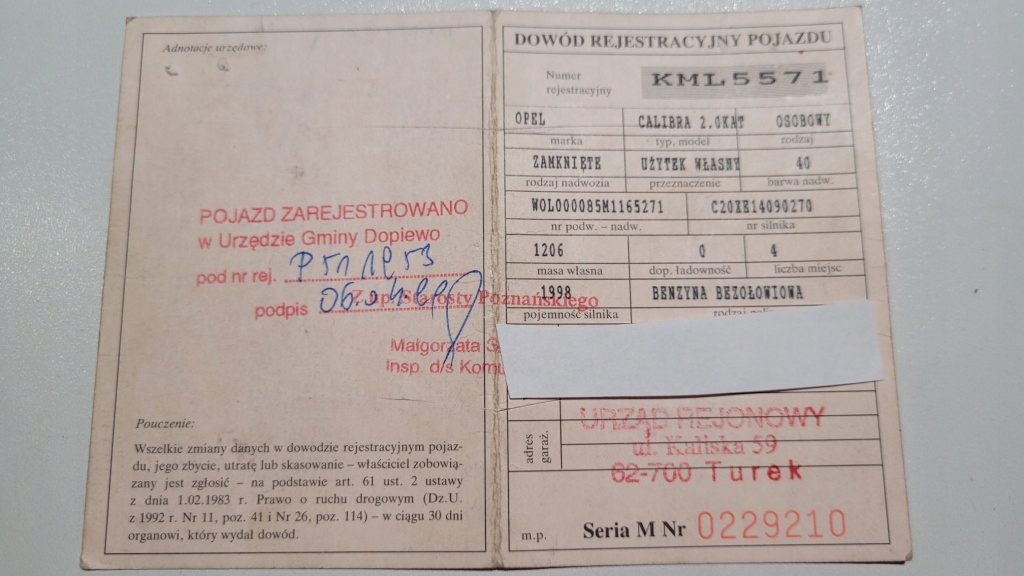 Adnotacje urzędowe:
POJAZD ZAREJESTROWANO
w Urzędzie Gminy Dopiewo
pod nr rej.
podpis
Z up. Starosty Poznańskiego
Małgorzata
Insp. d/s
Pouczenie:
Wszelkie zmiany danych w dowodzie rejestracyjnym pojaz-
du, jego zbycie, utratę lub skasowanie – właściciel zobowią-
zany jest zgłosić – na podstawie art. 61 ust. 2 ustawy
z dnia 1.02.1983 r. Prawo o ruchu drogowym (Dz.U.
z 1992 r. Nr 11, poz. 41 i Nr 26, poz. 114) – w ciągu 30 dni
organowi, który wydał dowód.
DOWÓD REJESTRACYJNY POJAZDU
Numer
rejestracyjny
KML5571
OPEL CALIBRA 2.0KAT OSOBOWY
marka typ, model rodzaj
ZAMKNIĘTE UŻYTEK WŁASNY 40
rodzaj nadwozia przeznaczenie barwa nadw.
WOL000085M1165271 C20XE14090270
nr podw. – nadw. nr silnika
1206 0 4
masa własna dop. ładowność liczba miejsc
1998 BENZYNA BEZOŁOWIOWA
pojemność silnika
adres
garaż.
URZĄD REJONOWY
ul. Kaliska 59
62-700 Turek
m.p. Seria M Nr 0229210